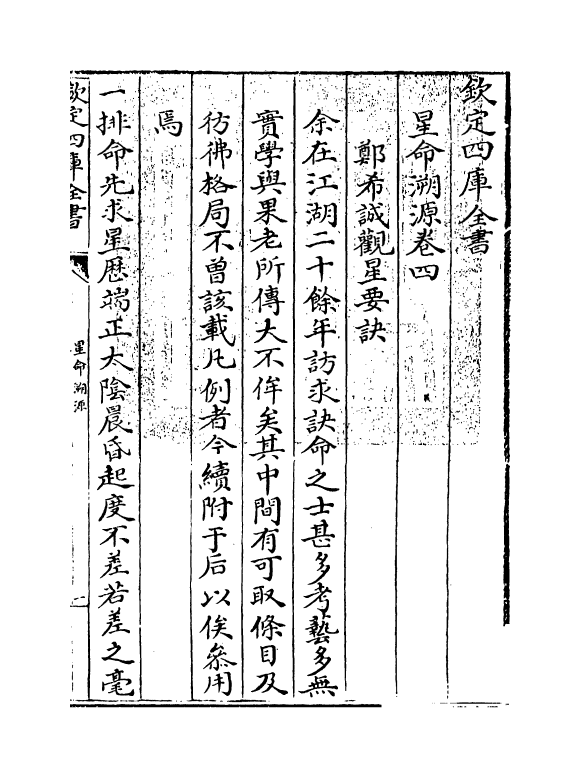 欽定四庫全書
星命溯源卷四
鄭希誠觀星要訣
余在江湖二十餘年訪求談命之士甚多考藝多無
實學與果老所傳大不侔矣其中間有可取條目及
彷彿格局不曾該載凡例者今續附于后以俟叅用
焉
一排命先求星歷端正太陰晨昏起度不差若差之毫
欽定四庫全書
星命溯源
一